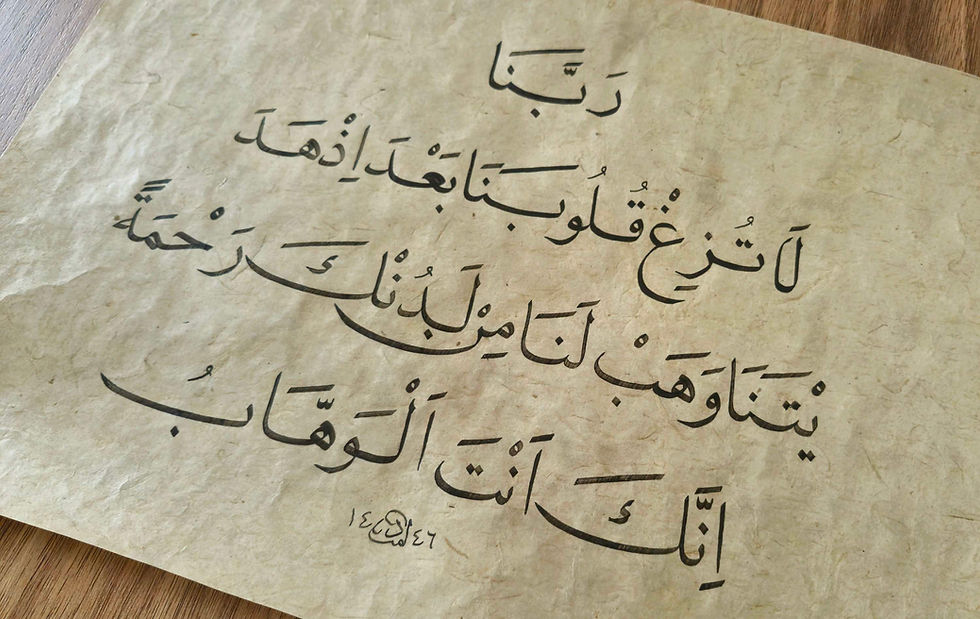 رَبَّنَا
لَا تُزِغْ قُلُوبَنَا بَعْدَ اِذْ هَدَ
يْتَنَا وَهَبْ لَنَا مِنْ لَدُنْكَ رَحْمَةً
اِنَّكَ اَنْتَ اَلْوَهَّابُ
١٤ ٤٦